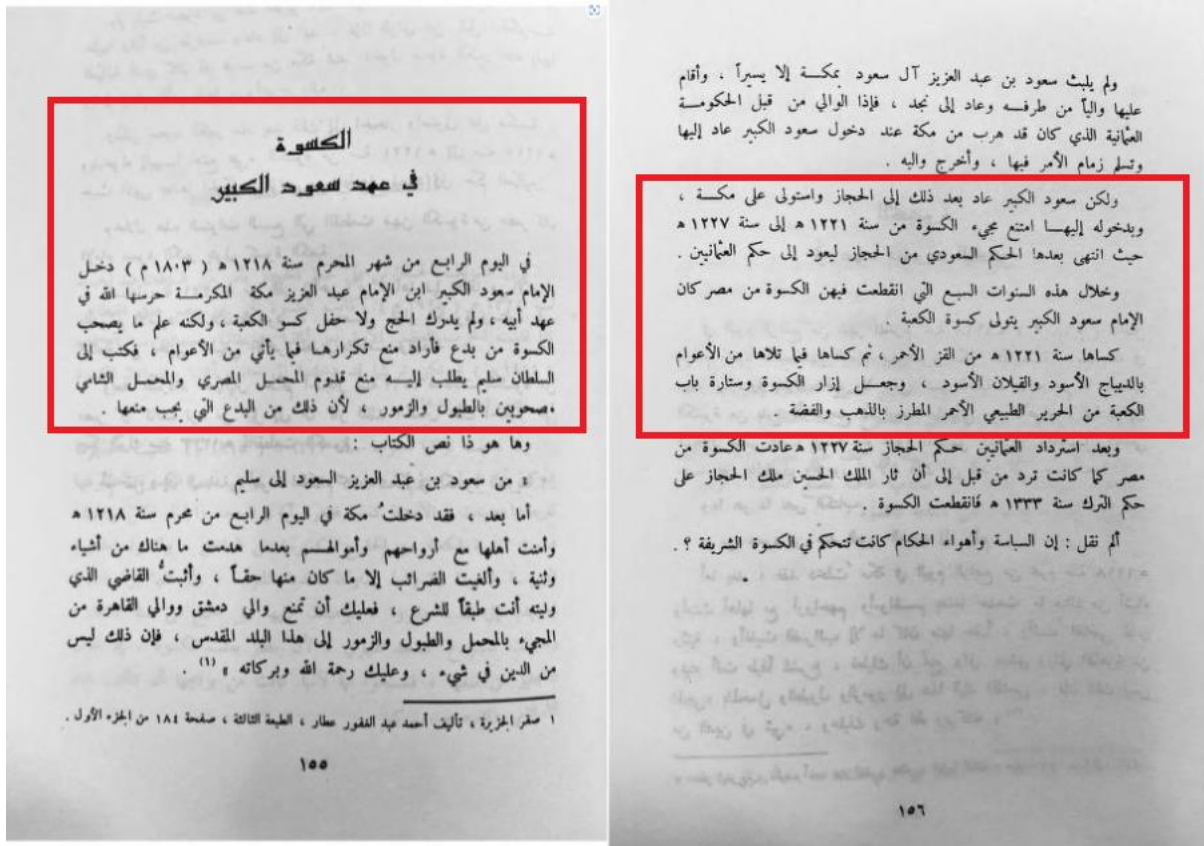 الكسوة
في عهد سعود الكبير
في اليوم الرابع من شهر المحرم سنة ١٢١٨ ه ( ١٨٠٣ م ) دخل
الإمام سعود الكبير ابن الإمام عبد العزيز مكة المكرمة حرسها الله في
عهد أبيه ، ولم يدرك الحج ولا حفل كسو الكعبة ، ولكنه علم ما يصحب
الكسوة من بدع فأراد منع تكرارها فيما يأتي من الأعوام ، فكتب إلى
السلطان سليم يطلب إليه منع قدوم المحمل المصري والمحمل الشامي
مصحوبين بالطبول والزمور ، لأن ذلك من البدع التي يجب منعها .
وها هو ذا نص الكتاب :
« من سعود بن عبد العزيز السعود إلى سليم
أما بعد ، فقد دخلتُ مكة في اليوم الرابع من محرم سنة ١٢١٨ ه
وأمنت أهلها مع أرواحهم وأموالهم بعدما هدمت ما هناك من أشياء
وثنية ، وألغيت الضرائب إلا ما كان منها حقاً ، وأثبتُّ القاضي الذي
وليته أنت طبقاً للشرع ، فعليك أن تمنع والي دمشق ووالي القاهرة من
المجيء بالمحمل والطبول والزمور إلى هذا البلد المقدس ، فإن ذلك ليس
من الدين في شيء ، وعليك رحمة الله وبركاته » (١) .
١ صقر الجزيرة ، تأليف أحمد عبد الغفور عطار ، الطبعة الثالثة ، صفحة ١٨٤ من الجزء الأول .
١٥٥
ولم يلبث سعود بن عبد العزيز آل سعود بمكة إلا يسيراً ، وأقام
عليها والياً من طرفه وعاد إلى نجد ، فإذا الوالي من قبل الحكومة
العثمانية الذي كان قد هرب من مكة عند دخول سعود الكبير عاد إليها
وتسلم زمام الأمر فيها ، وأخرج واليه .
ولكن سعود الكبير عاد بعد ذلك إلى الحجاز واستولى على مكة ،
وبدخوله إليها امتنع مجيء الكسوة من سنة ١٢٢١ ه إلى سنة ١٢٢٧ ه
حيث انتهى بعدها الحكم السعودي من الحجاز ليعود إلى حكم العثمانيين .
وخلال هذه السنوات السبع التي انقطعت فيهن الكسوة من مصر كان
الإمام سعود الكبير يتولى كسوة الكعبة
كساها سنة ١٢٢١ ه من القز الأحمر ، ثم كساها فيما تلاها من الأعوام
بالديباج الأسود والقيلان الأسود ، وجعل إزار الكسوة وستارة باب
الكعبة من الحرير الطبيعي الأحمر المطرز بالذهب والفضة .
وبعد استرداد العثمانيين حكم الحجاز سنة ١٢٢٧ ه عادت الكسوة من
مصر كما كانت ترد من قبل إلى أن ثار الملك الحسين ملك الحجاز على
حكم الترك سنة ١٣٣٣ ه فانقطعت الكسوة .
ألم نقل : إن السياسة وأهواء الحكام كانت تتحكم في الكسوة الشريفة ؟ .
١٥٦